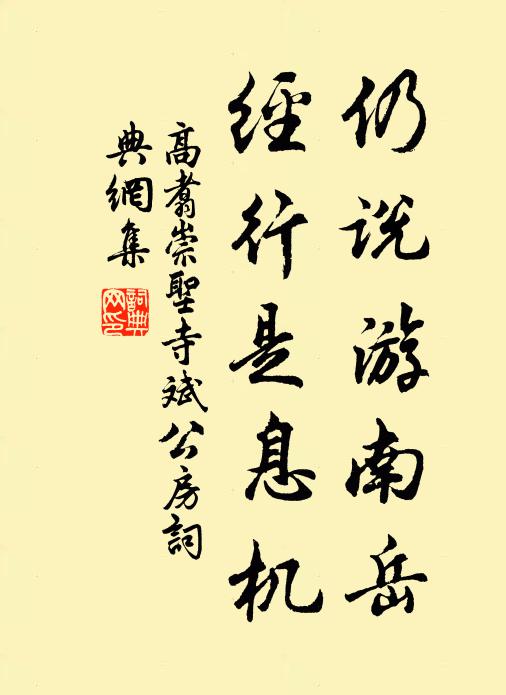 仍说游南岳
经行是息机
高翥崇聖寺斌公房詞
典網集
詞典网印